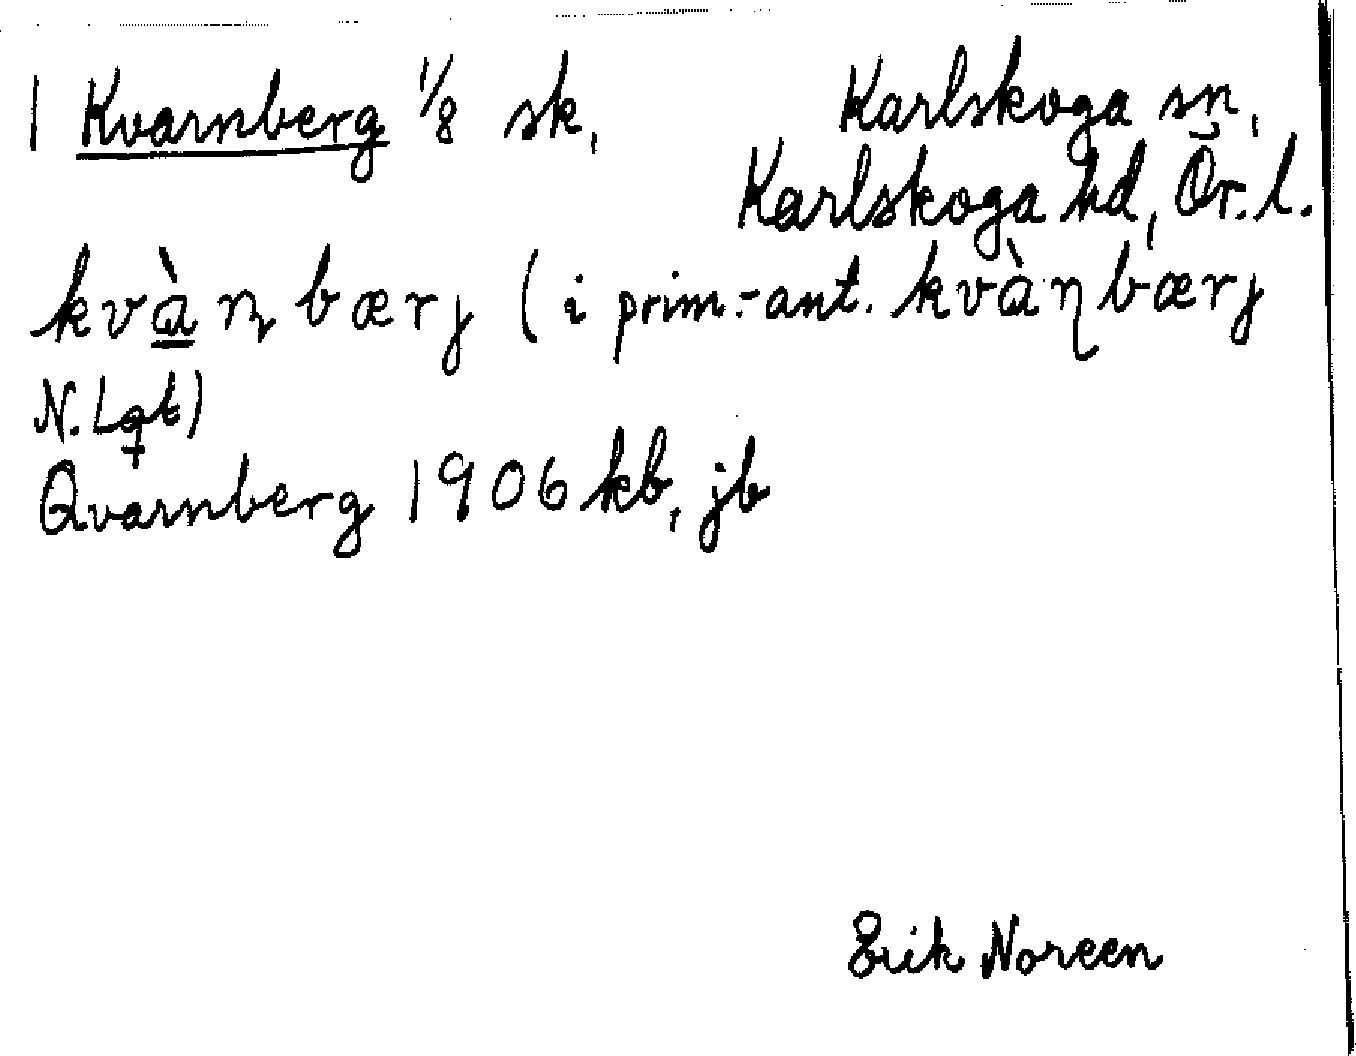 1 Kvarnberg 1/8 sk, Karlskoga sn,
Karlskoga hd, Ör. l.
kvàɳbærj (i prim.-ant. kvàɳbærj
N. Lqt)
Qvarnberg 1906 kb, jb
Erik Noreen